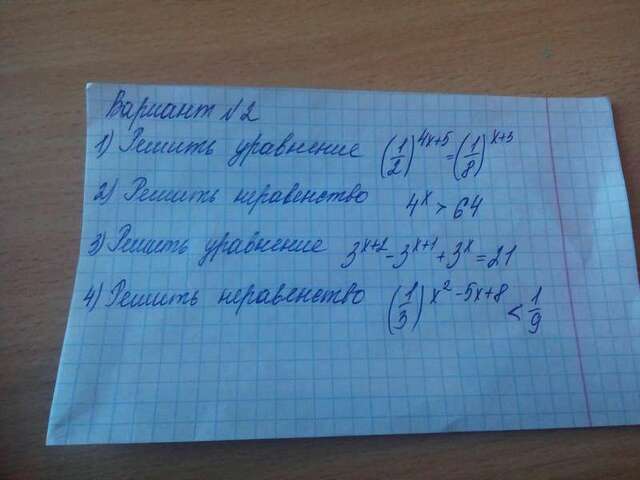 Вариант №2
1) Решить уравнение (1/2)^(4x+5) = (1/8)^(x+3)
2) Решить неравенство 4^x > 64
3) Решить уравнение 3^(x+2) - 3^(x+1) + 3^x = 21
4) Решить неравенство (1/3)^(x^2 - 5x + 8) < 1/9